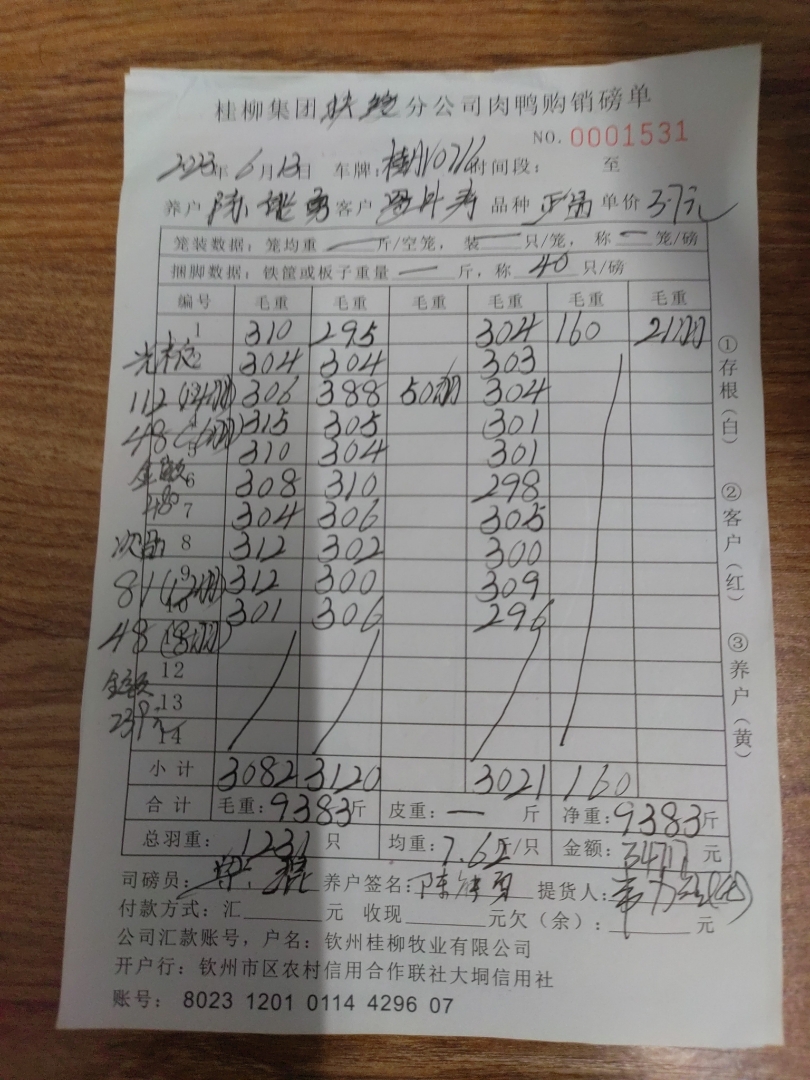 桂柳集团 分公司肉鸭购销磅单
NO. 0001531
2023年6月13日 车牌: 时间段: 至
养户 陈 勇 客户 品种 正品 单价 3.7元
笼装数据: 笼均重 — 斤/空笼, 装 — 只/笼, 称 — 笼/磅
捆脚数据: 铁筐或板子重量 — 斤, 称 40 只/磅
编号 毛重 毛重 毛重 毛重 毛重 毛重
1 310 295 304 160 21羽
2 304 304 303
112 (14羽) 306 388 50羽 304
48 (6羽) 315 305 301
5 310 304 301
金额 6 308 310 298
7 304 306 305
次品 8 312 302 300
81 (12羽) 9 312 300 309
10 301 306 296
48 (8羽)
12
金额 13
239元 14
小计 3082 3120 3021 160
合计 毛重: 9383斤 皮重: — 斤 净重: 9383斤
总羽重: 1231 只 均重: 7.62斤/只 金额: 34717 元
司磅员: 养户签名: 陈 勇 提货人:
付款方式: 汇 元 收现 元欠(余): 元
公司汇款账号, 户名: 钦州桂柳牧业有限公司
开户行: 钦州市区农村信用合作联社大垌信用社
账号: 8023 1201 0114 4296 07
①存根(白) ②客户(红) ③养户(黄)